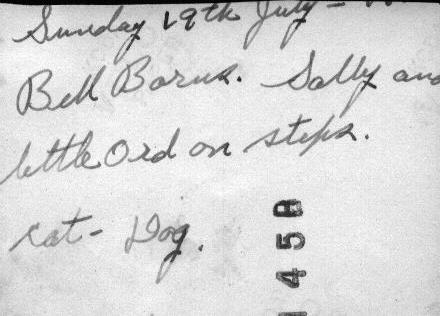 Sunday 19th July -
Bell Barns. Sally and
little Ord on steps.
cat - Dog.
1458